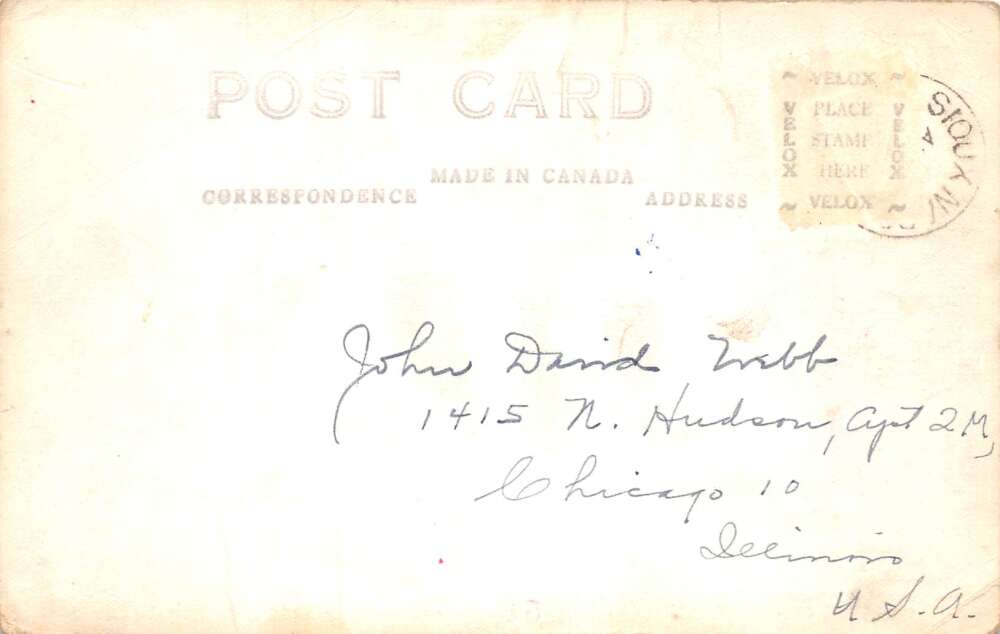 POST CARD
MADE IN CANADA
CORRESPONDENCE
ADDRESS
~ VELOX ~
VELOX
PLACE
STAMP
HERE
VELOX
~ VELOX ~
SIOUX
John David Webb
1415 N. Hudson, Apt 2M,
Chicago 10
Illinois
U.S.A.